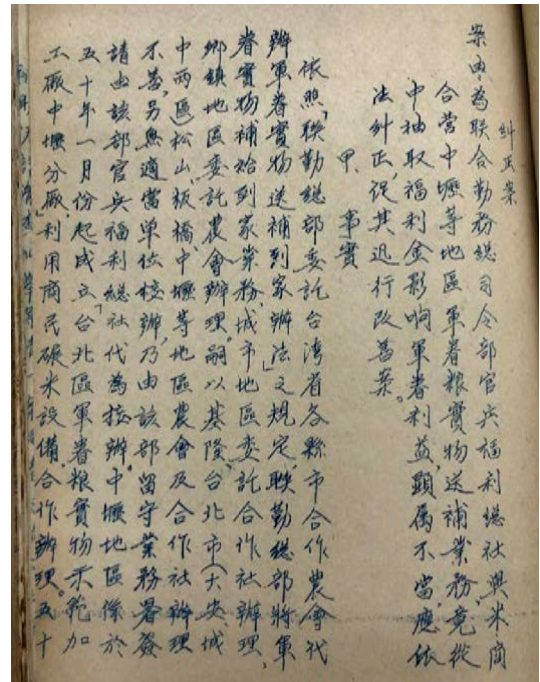 糾正案
案由：為聯合勤務總司令部官兵福利總社與米商
合营中壢等地區軍眷粮實物送補業務，竟從
中抽取福利金影响軍眷利益，顕属不當，應依
法糾正，促其迅行改善案。
甲、事實
依照「聯勤總部委託台湾省各縣市合作農會代
辦軍眷實物送補到家辦法」之規定，聯勤總部將軍
眷實物補給到家業務，城市地區委託合作社辦理，
鄉鎮地區委託農會辦理。嗣以基隆、台北市（大安、城
中兩區）松山、板橋、中壢等地區農會及合作社辦理
不善，另無適當單位接辦，乃由該部留守業務署簽
請由該部官兵福利總社代為接辦。中壢地區係於
五十年一月份起成立「台北區軍眷粮實物示範加
工廠中壢分廠」，利用商民碾米設備，合作辦理。五十